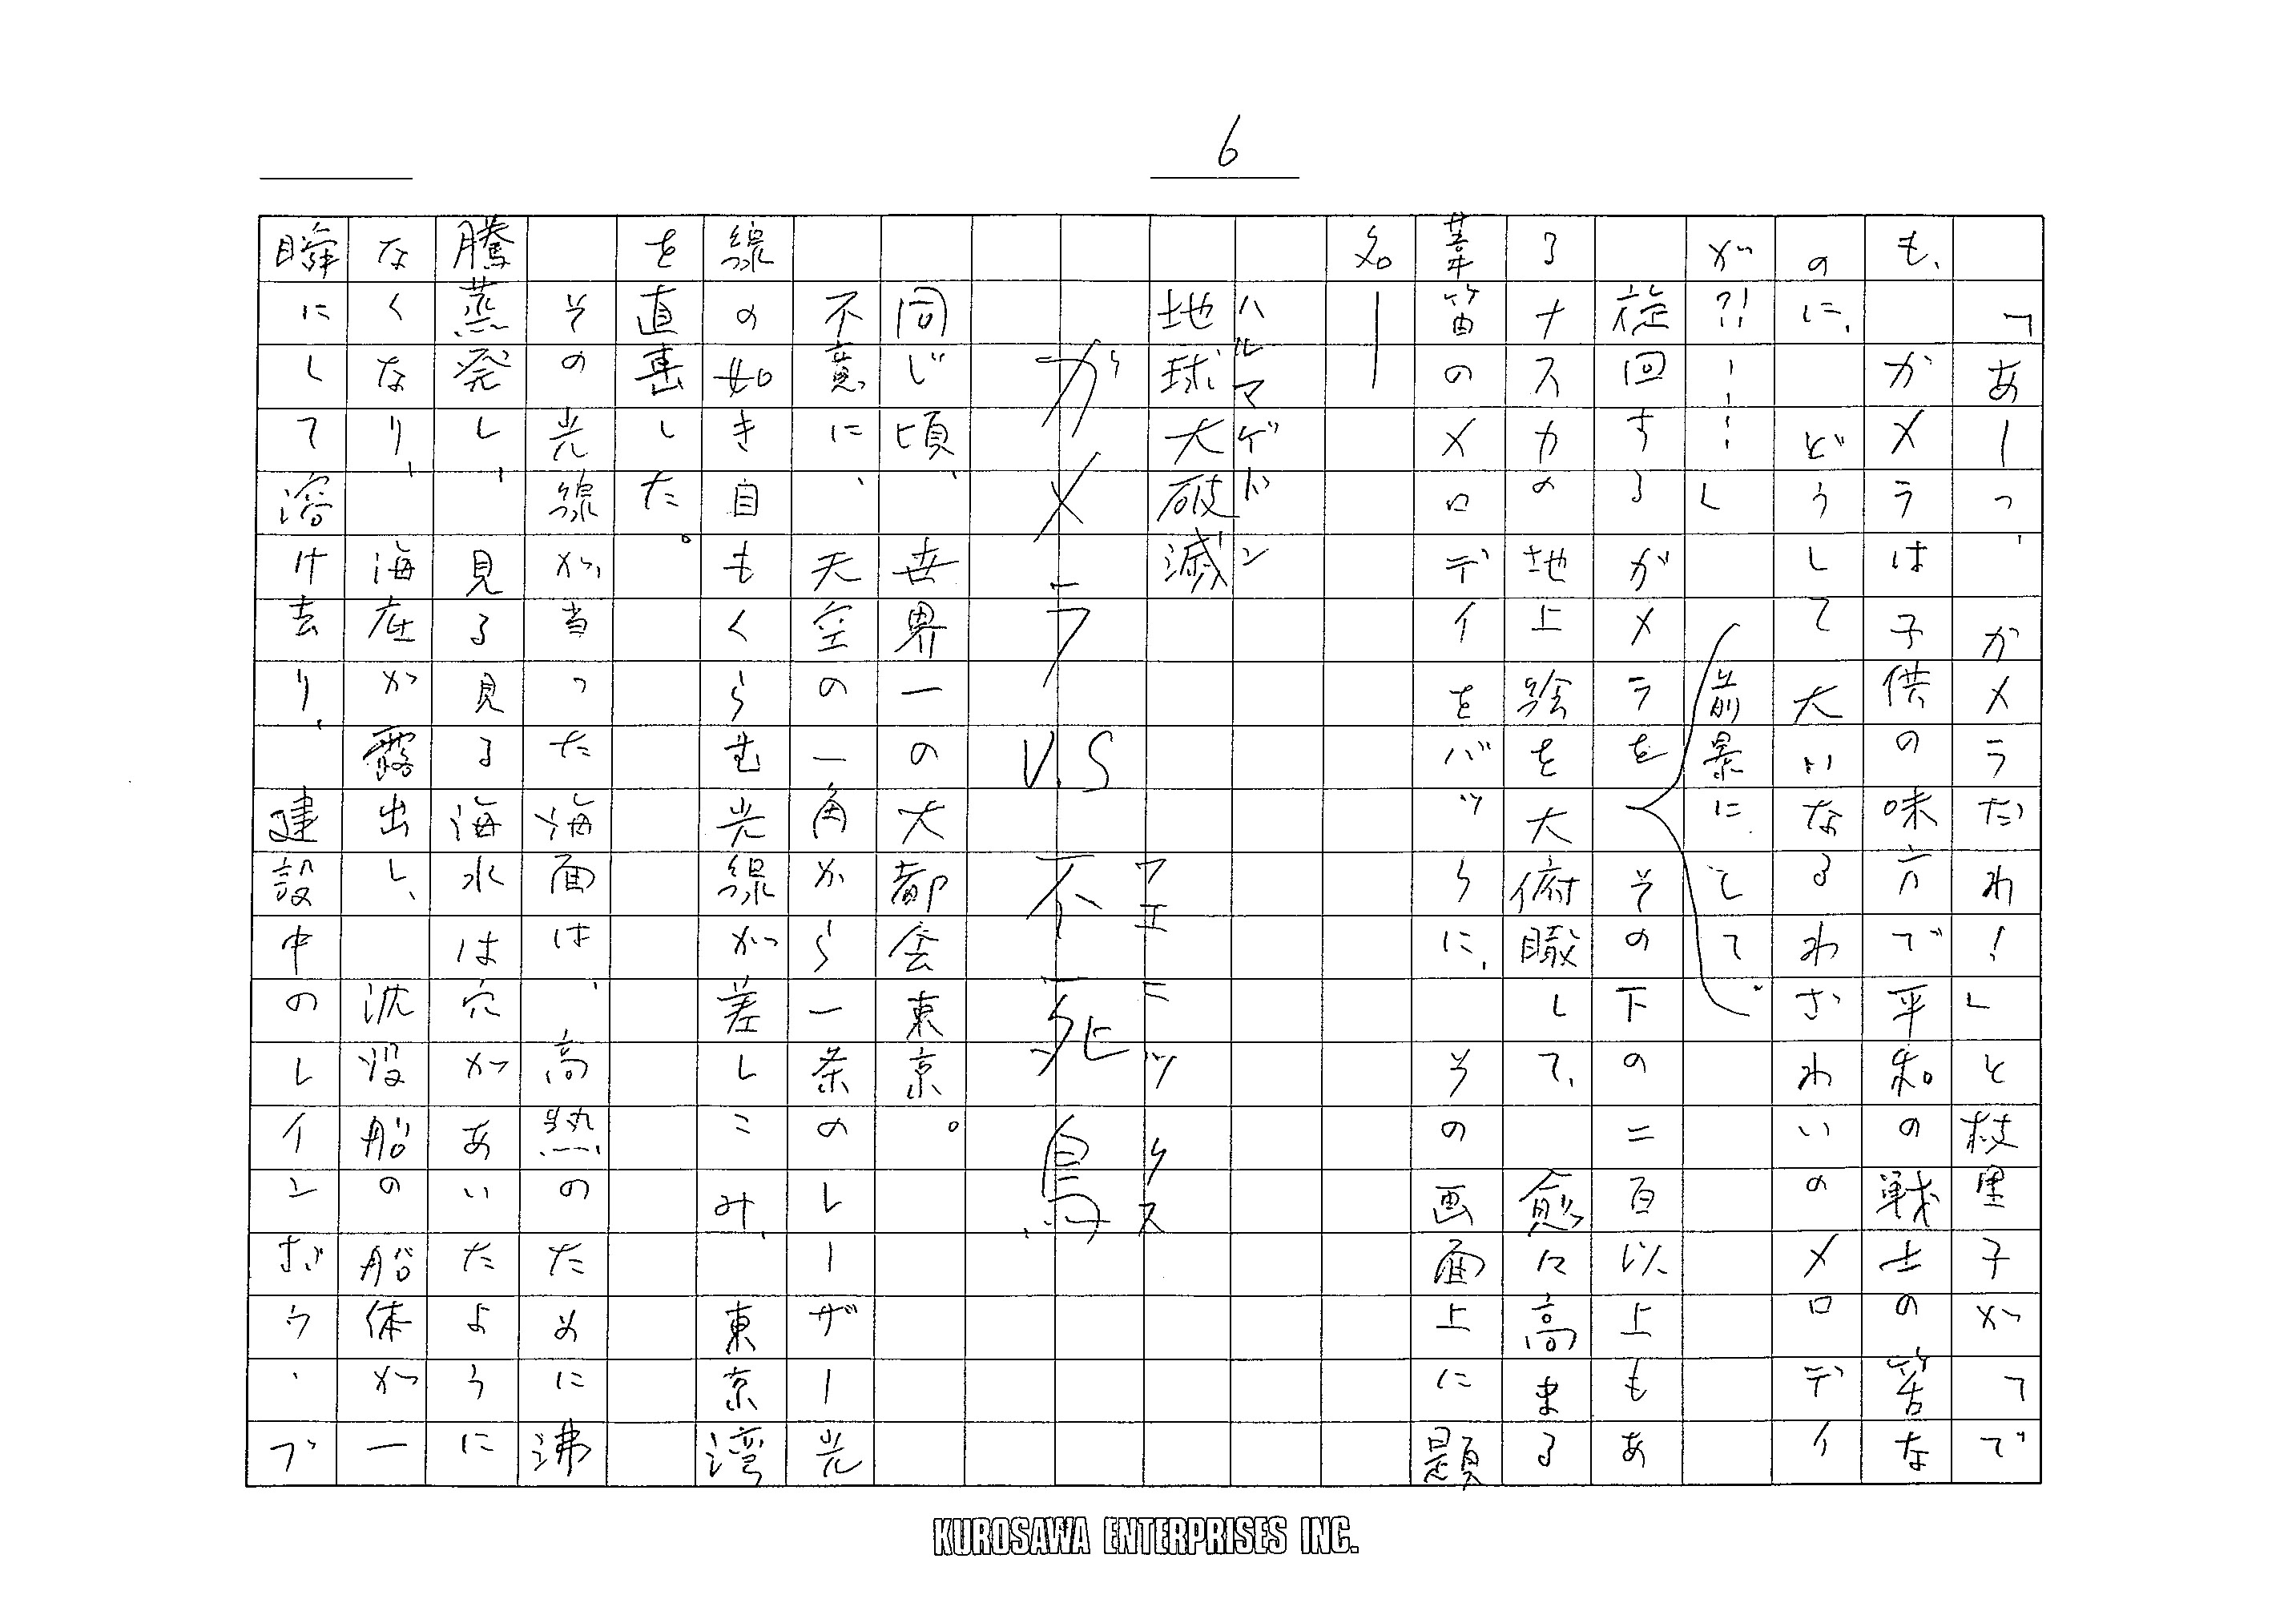 6
「あーっ、ガメラだわ!」と枝里子がって
も、ガメラは子供の味方で平和の戦士の筈な
のに、どうして大いなるわざわいのメロディ
が?!……」(前景にして。)
旋回するガメラを、その下の二百以上もあ
るナスカの地上絵を大俯瞰して、愈々高まる
葦笛のメロディをバックに、その画面上に題
名―
ハルマゲドン
地球大破滅
ガメラ V.S 不死鳥
フェニックス
同じ頃、世界一の大都会東京。
不意に、天空の一角から一条のレーザー光
線の如きも光線が差しこみ、東京湾
を直撃した。
その光線が当った海面は、高熱のために沸
騰蒸発し、見る見る海水は穴があいたように
なくなり、海底が露出し、沈没船の船体が一
瞬にして溶け去り、建設中のレインボウ・ブ
KUROSAWA ENTERPRISES INC.